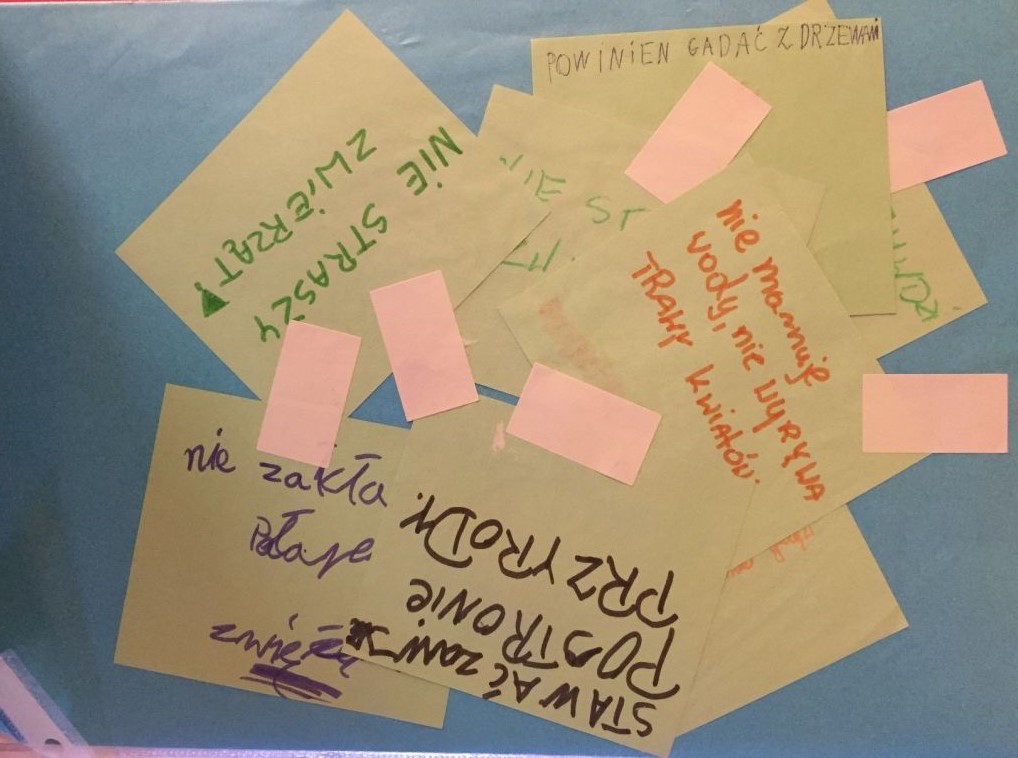 POWINIEN GADAĆ Z DRZEWAMI
NIE STRASZY
ZWIERZĄT!
NIE ST
nie marnuje
wody, nie wyrywa
TRAWY KWIATÓW.
nie zakła
STAWAĆ ZAWSZE
PO STRONIE
PRZYRODY.